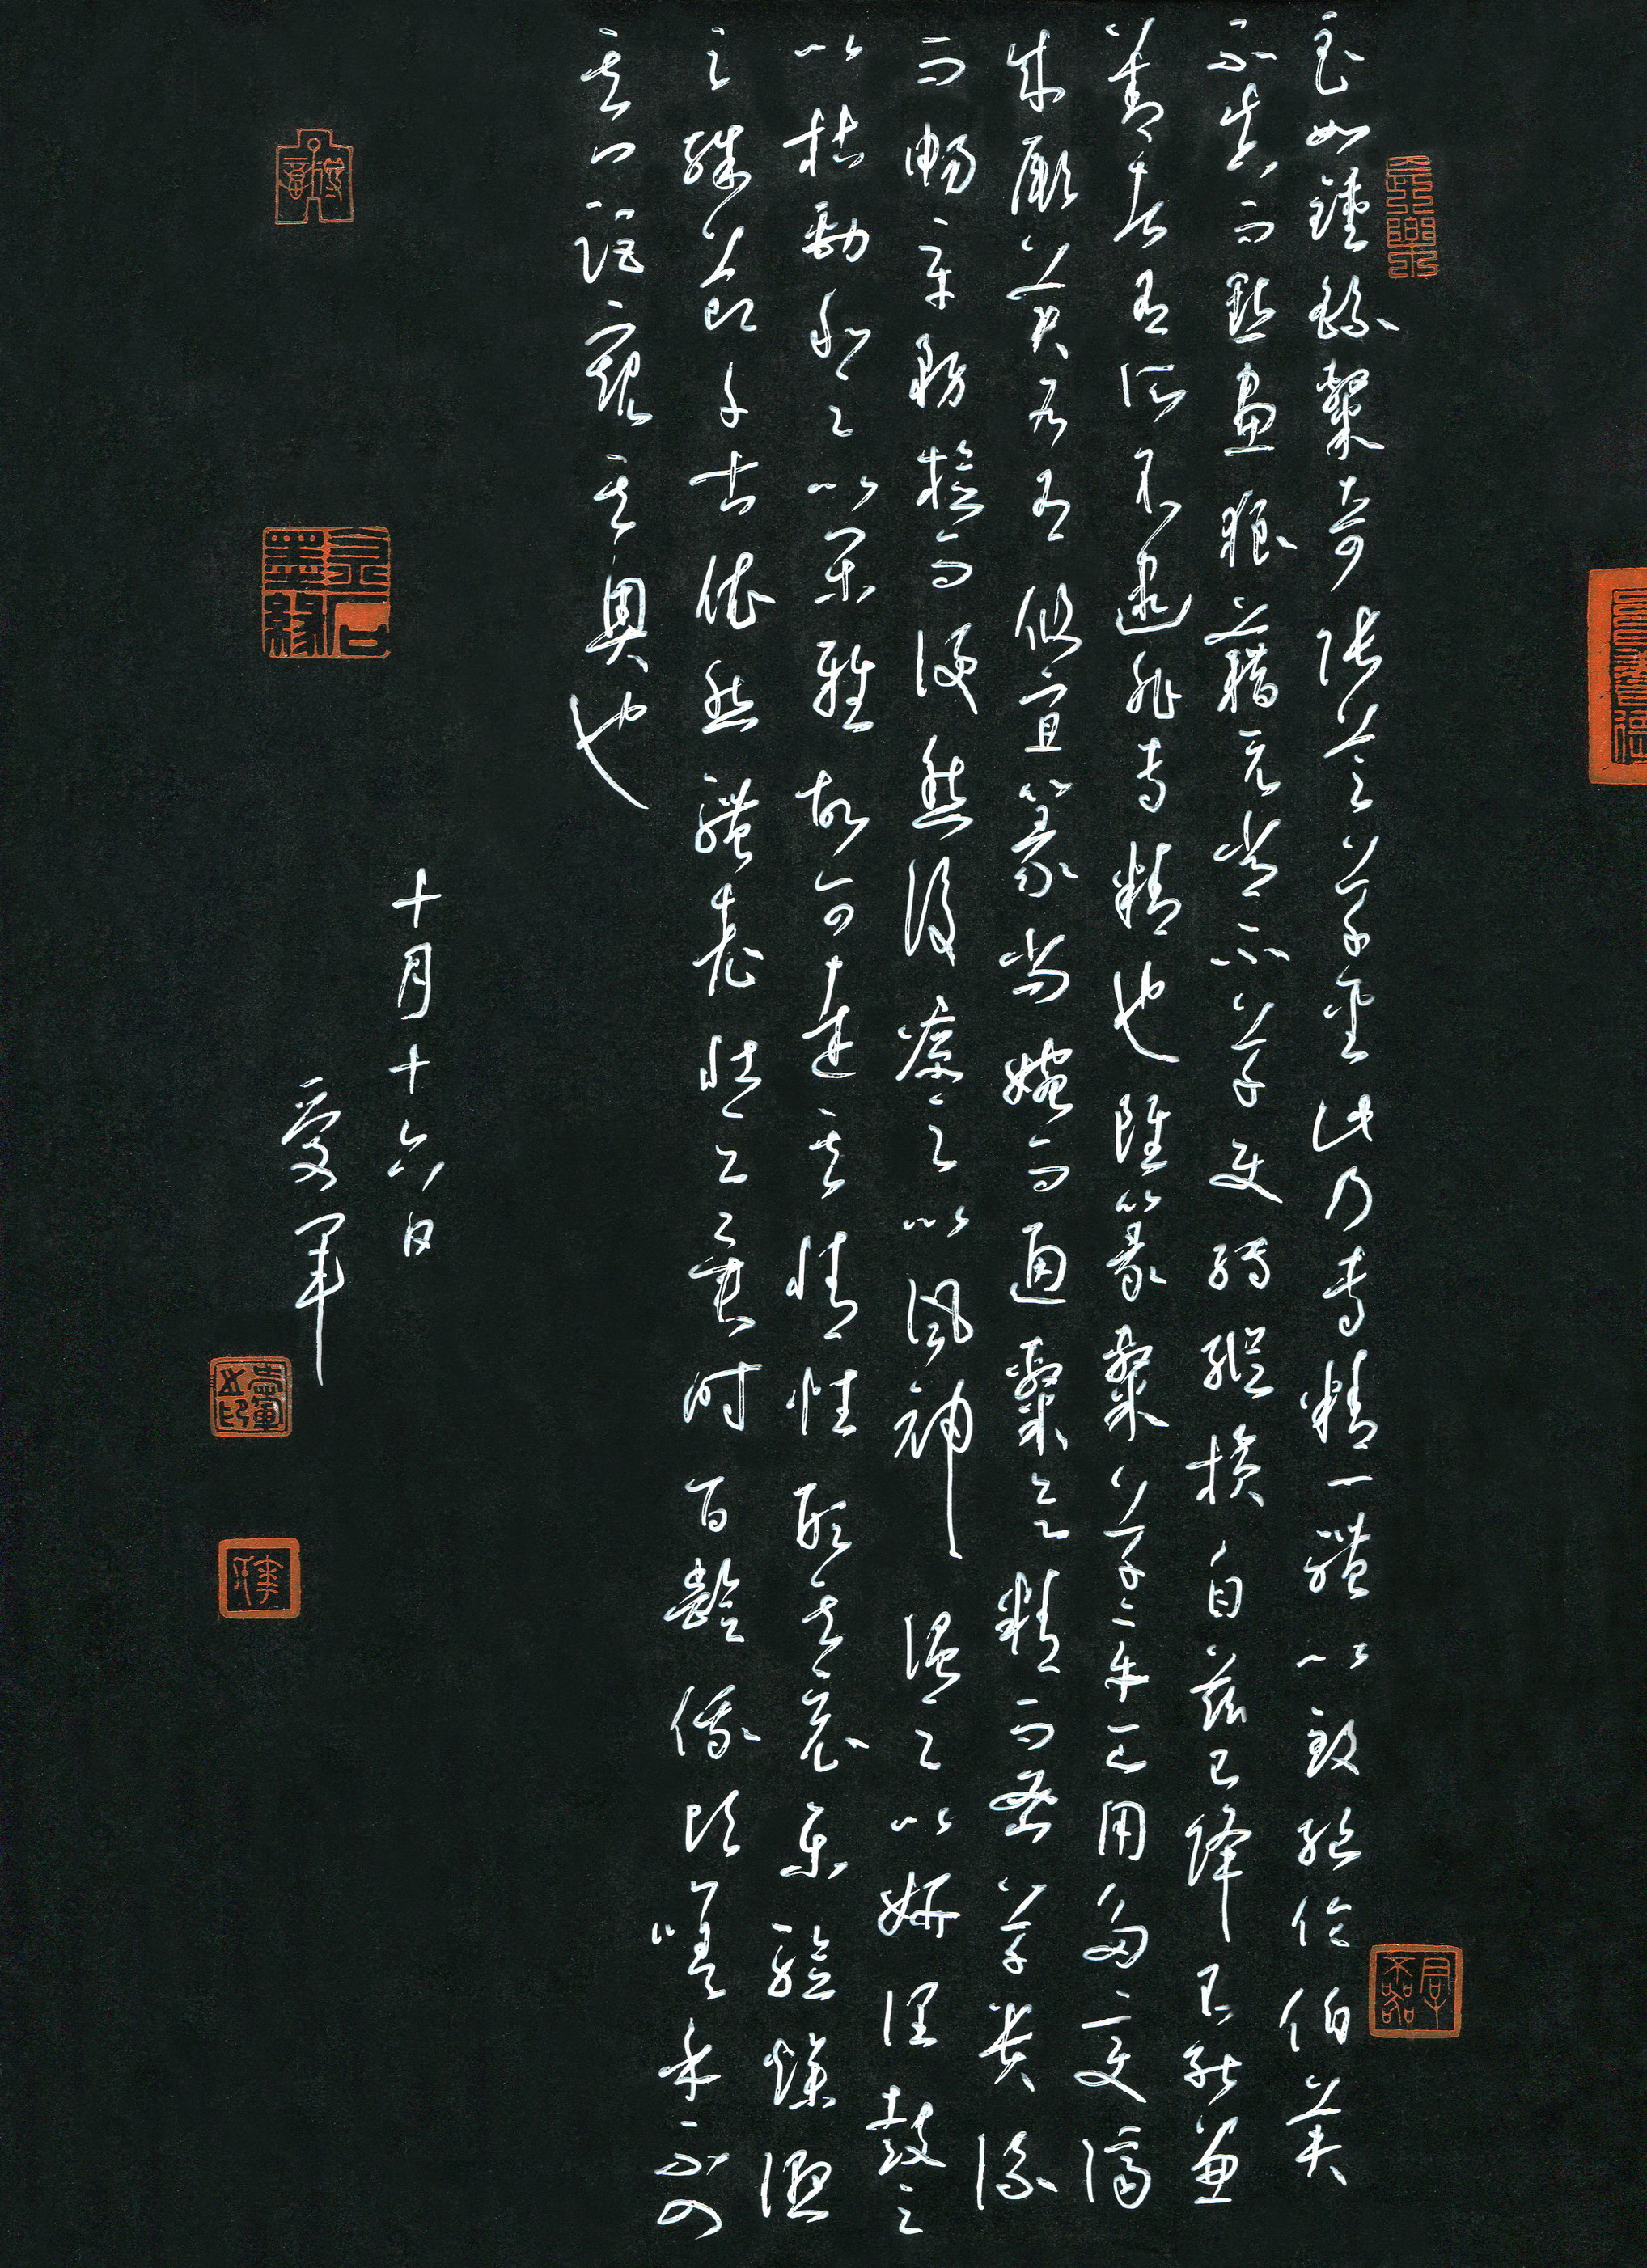 長樂
至如鍾繇隸奇張芝草聖此乃專精一體以致絕倫伯英
不真而點畫狼藉元常不草使轉縱橫自茲已降不能兼
善者有所不逮非專精也雖篆隸草章工用多變濟
成厥美各有攸宜篆尚婉而通隸欲精而密草貴流
而暢章務檢而便然後凜之以風神溫之以妍潤鼓之
以枯勁和之以閑雅故可達其情性形其哀樂驗燥濕
之殊節千古依然體老壯之異時百齡俄頃嗟乎不入
其門詎窺其奧也
十月十六日
愛軍
金石墨緣